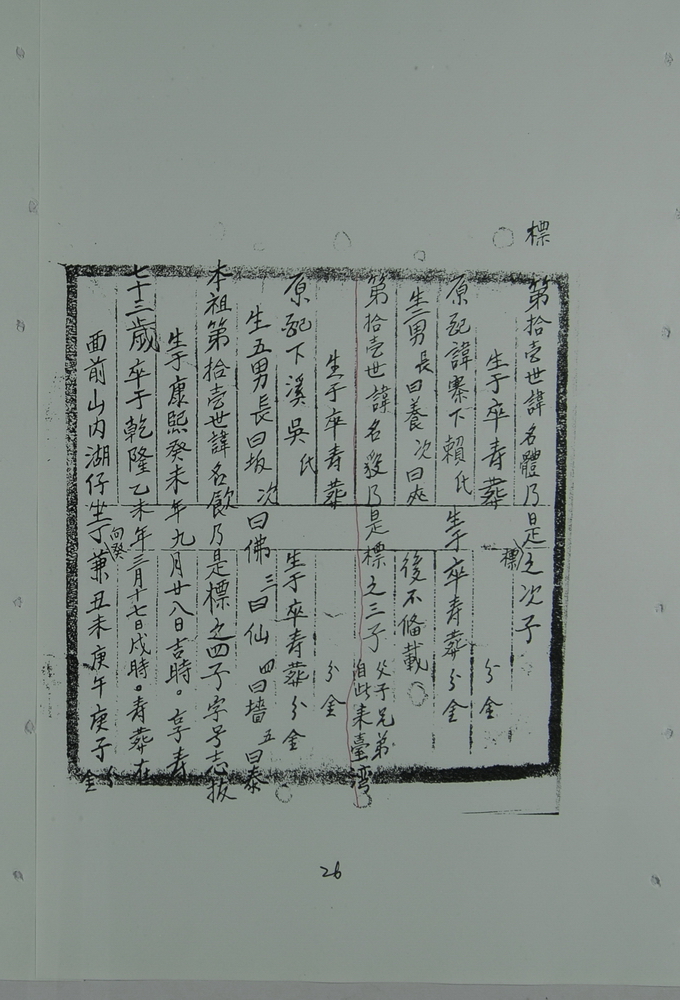 標
第拾壹世諱名體乃是標之次子
生于卒寿葬 分金
原配諱寨下賴氏 生于卒寿葬分金
生二男長曰養次曰爽 後不修載
第拾壹世諱名發乃是標之三子 父子兄弟自此来臺湾
生于卒寿葬 分金
原配下溪吳氏 生于卒寿葬分金
生五男長曰坂次曰佛三曰仙四曰墻五曰泰
本祖第拾壹世諱名飲乃是標之四子字号志拔
生于康熙癸未年九月廿八日吉時。享寿
七十三歲卒于乾隆乙未年三月十七日戌時。寿葬在
面前山内湖仔坐丁向癸兼丑未庚午庚子分金
26